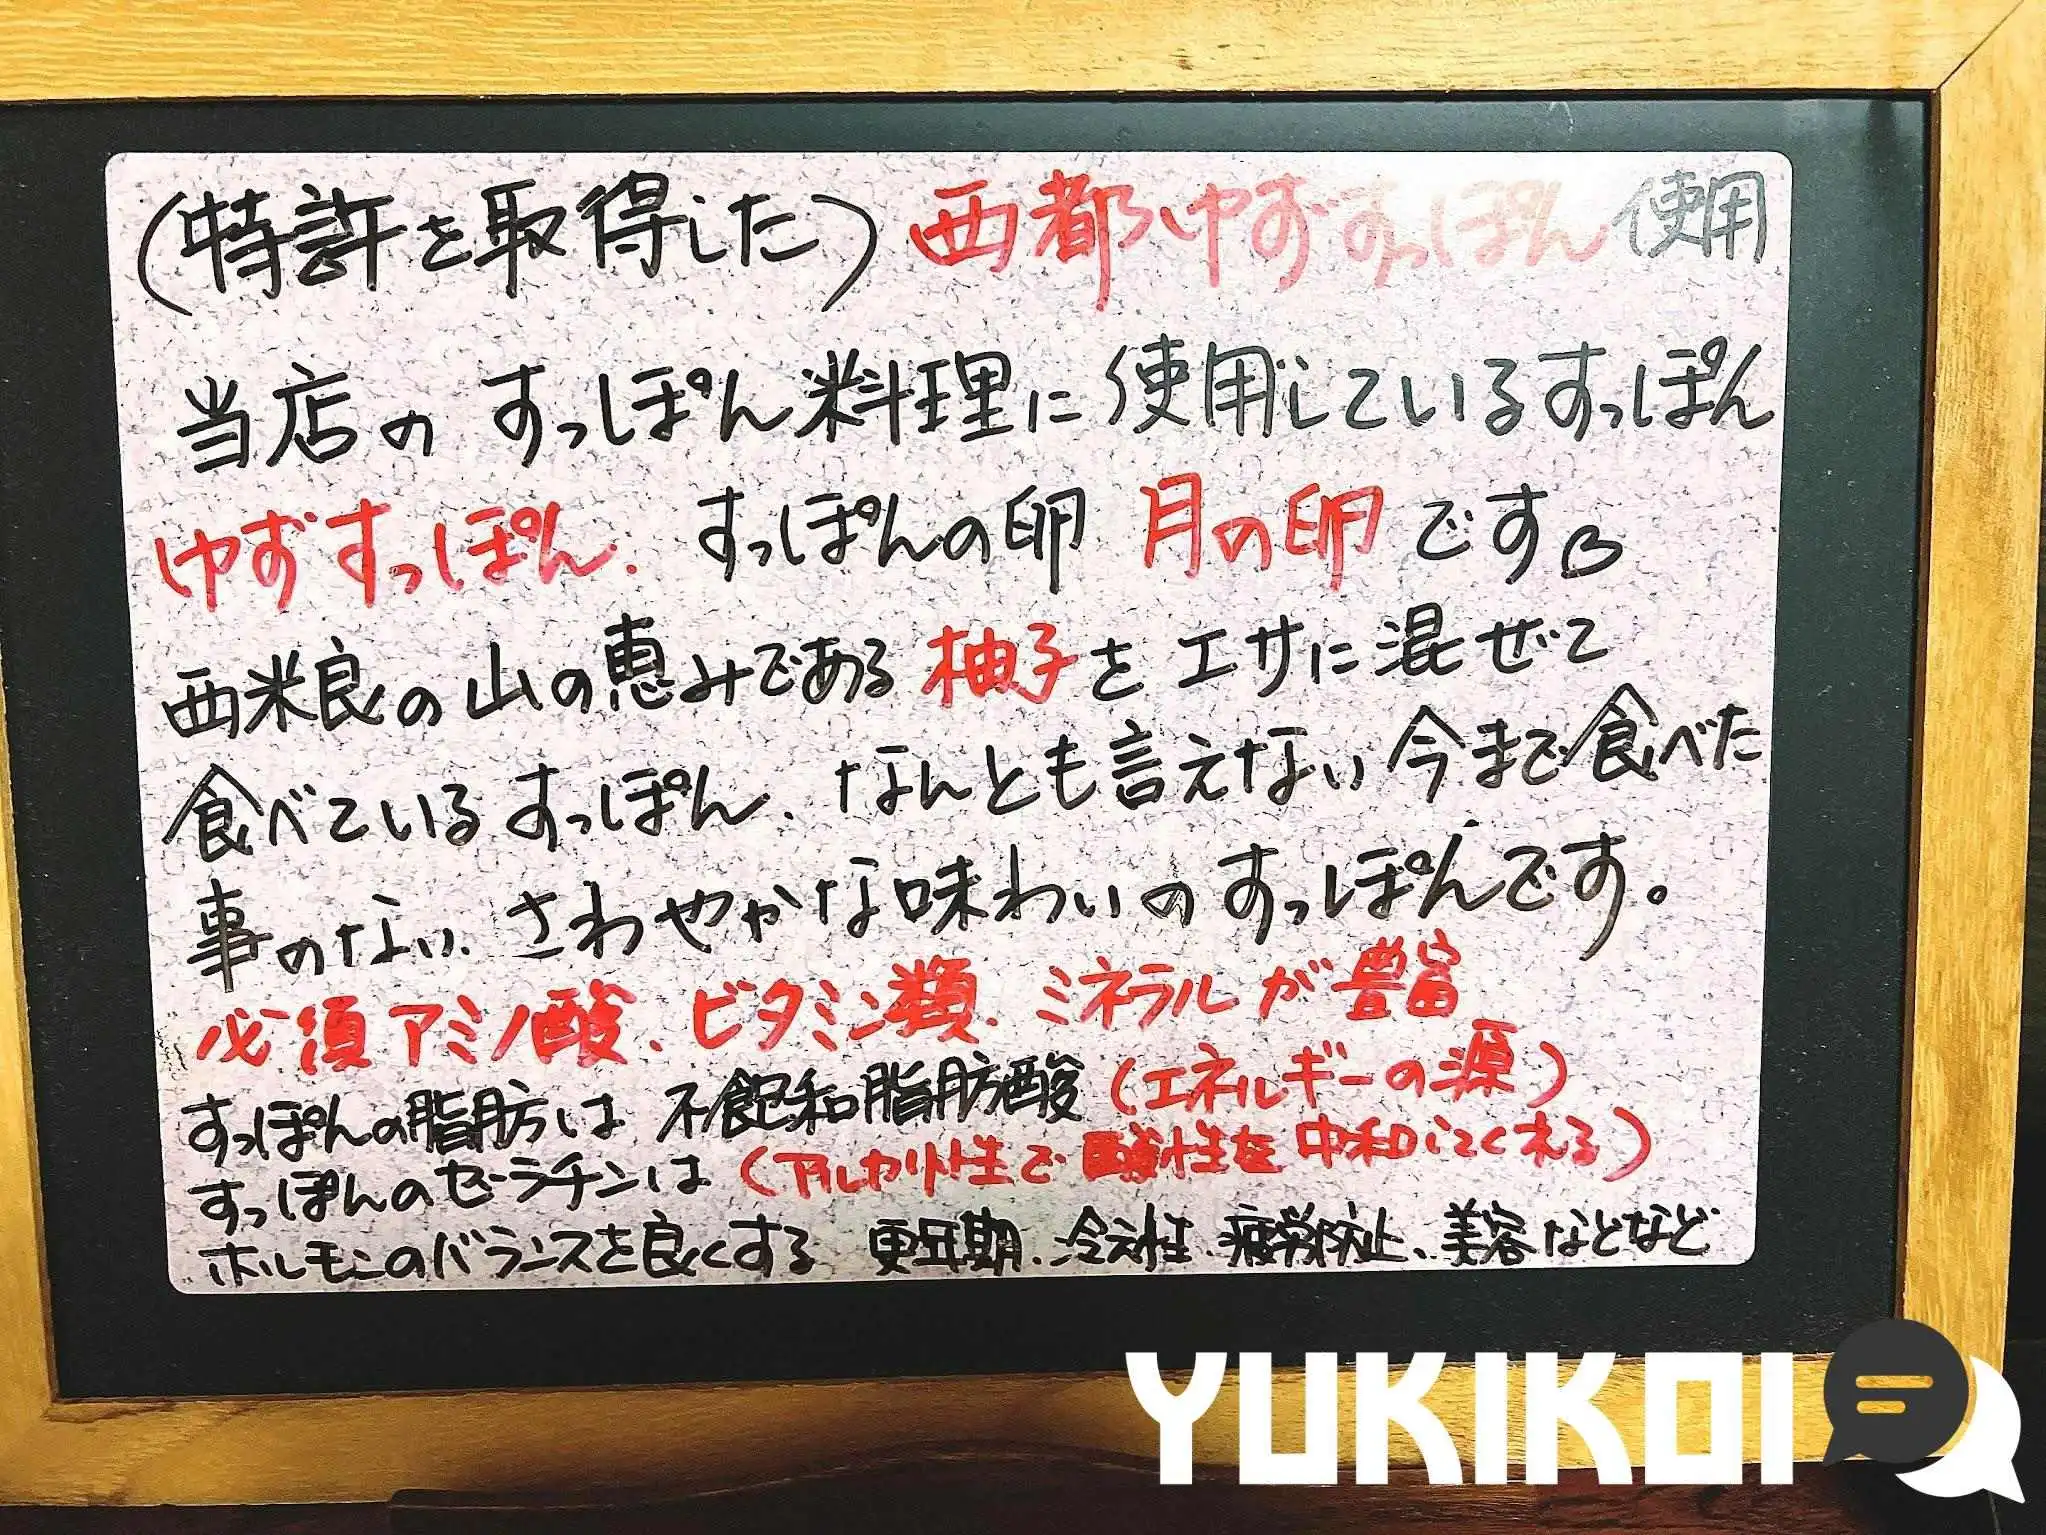 (特許を取得した) 西都ゆずすっぽん 使用
当店の すっぽん料理に使用しているすっぽん
ゆずすっぽん、すっぽんの卵 月の卵 です。
西米良の山の恵みである 柚子を エサに混ぜて
食べているすっぽん、なんとも言えない今まで食べた
事のない、さわやかな味わいのすっぽんです。
必須アミノ酸、ビタミン類、ミネラルが豊富
すっぽんの脂肪は 不飽和脂肪酸 (エネルギーの源)
すっぽんのゼラチンは (アルカリ性で酸性を中和してくれる)
ホルモンのバランスを良くする 更年期、冷え性、疲労防止、美容などなど
YUKIKOI